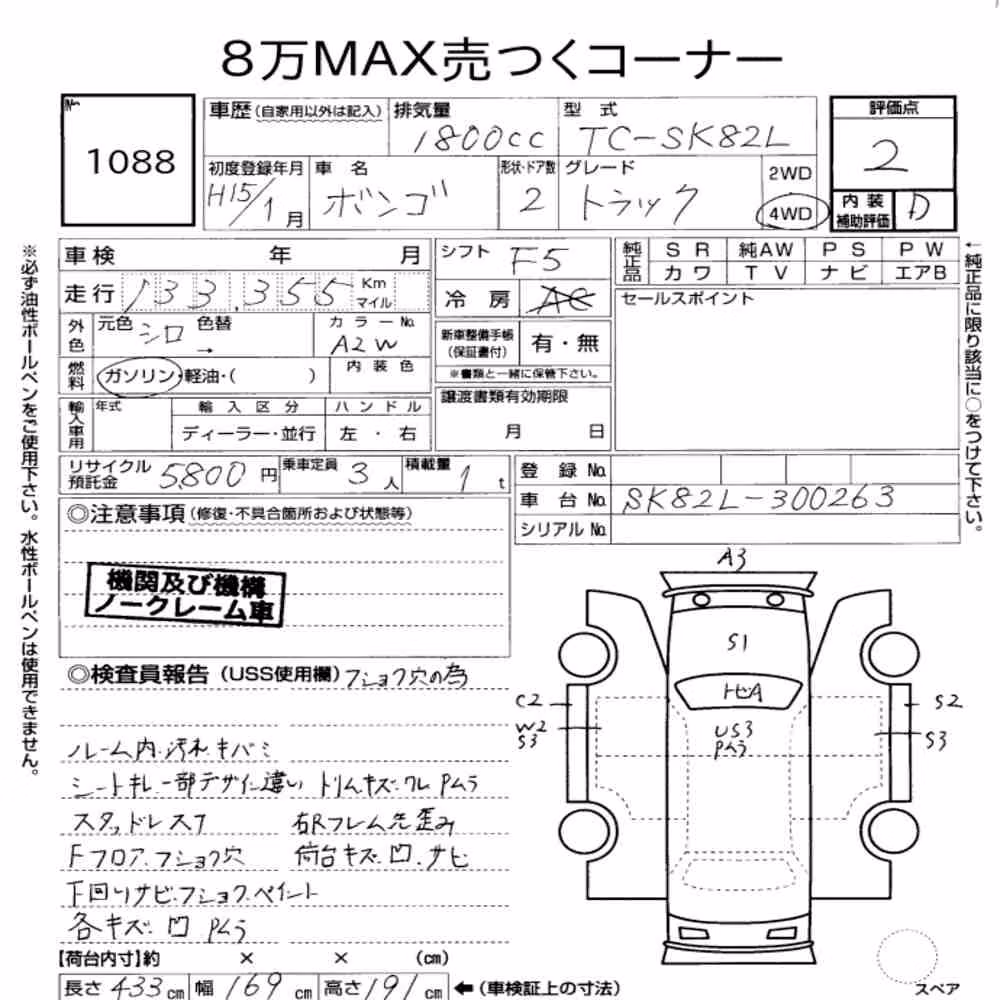 8万MAX売つくコーナー
No. 1088
車歴(自家用以外は記入) 排気量 1800cc 型式 TC-SK82L
初度登録年月 H15/1月 車名 ボンゴ 形状・ドア数 2 グレード トラック 2WD 4WD
評価点 2
内装補助評価 D
車検 年 月
走行 133,355 Km マイル
外色 元色 シロ 色替 → カラーNo. A2W
燃料 ガソリン・軽油・( ) 内装色
輸入車用 年式 輸入区分 ハンドル
ディーラー・並行 左・右
シフト F5
冷房 AC
新車整備手帳(保証書付) 有・無
※書類と一緒に保管下さい。
譲渡書類有効期限
月 日
純正品 SR 純AW PS PW
カワ TV ナビ エアB
セールスポイント
リサイクル預託金 5,800円 乗車定員 3人 積載量 1t
登録No.
車台No. SK82L-300263
シリアルNo.
◎注意事項(修復・不具合箇所および状態等)
機関及び機構
ノークレーム車
◎検査員報告(USS使用欄) フショク穴の為
ルーム内・汚れ・キバミ
シートキレ 一部デザイン違い トリムキズ・ワレ Pムラ
スタッドレス7 右Rフレーム先歪み
Fフロア・フショク穴 荷台キズ・凹・サビ
下回りサビ・フショク・ペイント
各キズ・凹 Pムラ
【荷台内寸】約 × × (cm)
長さ 433cm 幅 169cm 高さ 191cm ←(車検証上の寸法)
※必ず油性ボールペンをご使用下さい。水性ボールペンは使用できません。
←純正品に限り該当に○をつけて下さい。
A3
S1
トビA
US3
Pムラ
C2
W2
S3
S2
S3
スペア